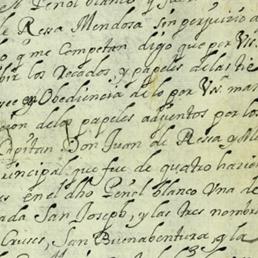 el Peñol blanco, y
de Ressa Mendosa Sin perjuicio d
o, q me competan digo que por Vs.
bir los Recados, y papeles de las tie
see en Obediencia de lo por Vs. man
cion de los papeles adjuntos por los
Capitan Don Juan de Ressa, y Al
rincipal que fue de quatro hazien
es en el dho Peñol blanco Una de
ada San Joseph, y las tres nombra
Cruses, San Buenabentura, y la